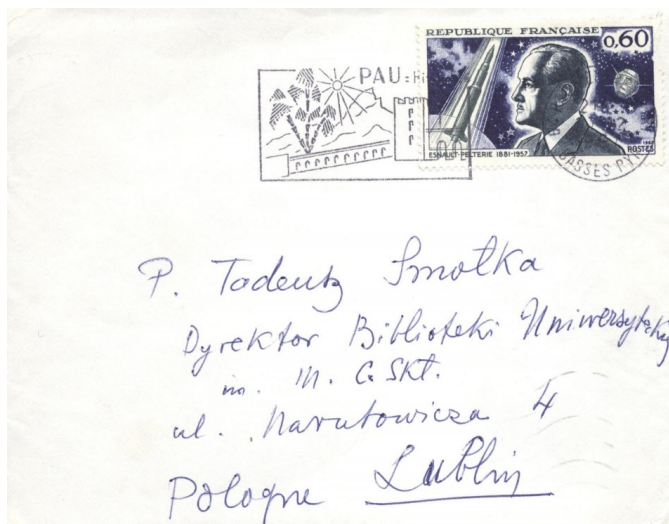 REPUBLIQUE FRANÇAISE
0,60
PAU:
ESNAULT-PELTERIE 1881-1957
POSTES
BASSES PYR
P. Tadeusz Smołka
Dyrektor Biblioteki Uniwersyteckiej
im. M. C. Skł.
ul. Narutowicza 4
Pologne Lublin